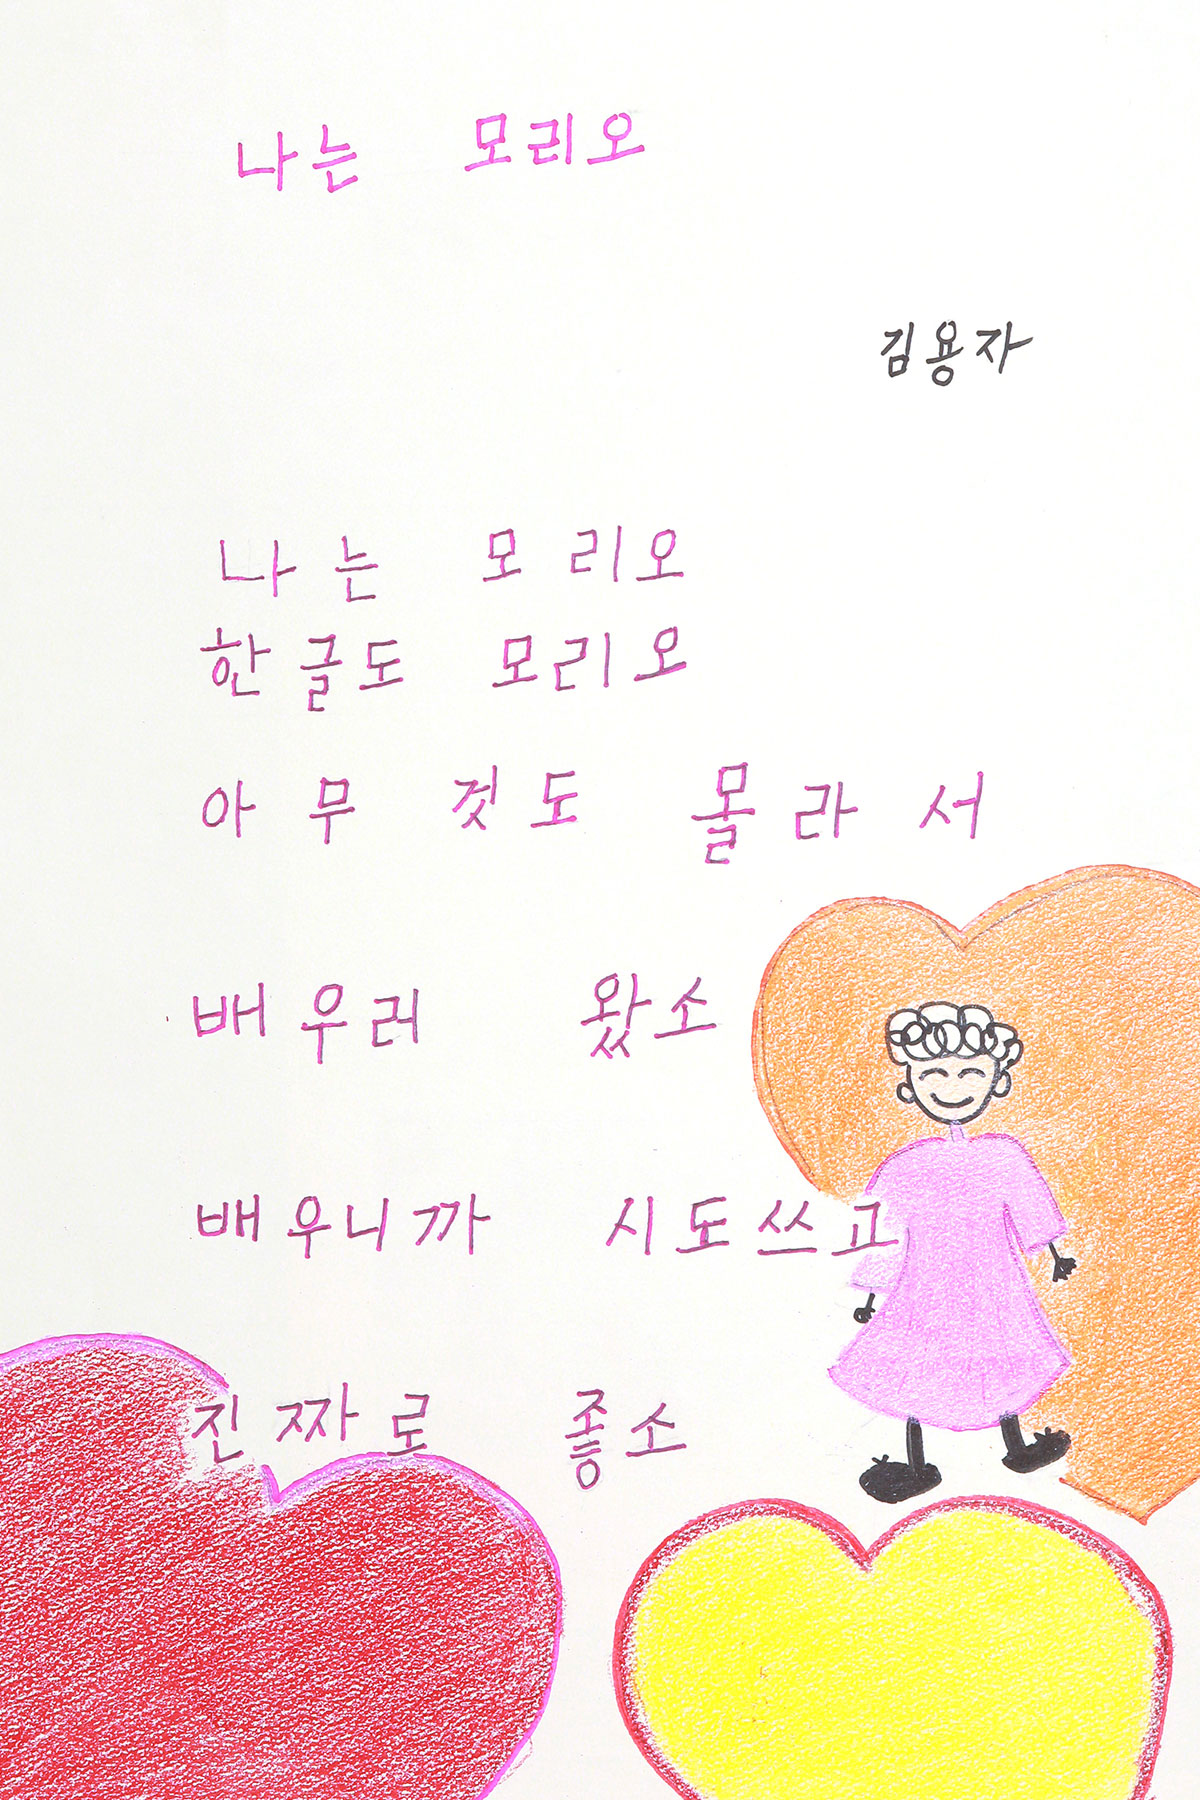 나는 모리오
김용자
나는 모리오
한글도 모리오
아무것도 몰라서
배우러 왔소
배우니까 시도쓰고
진짜로 좋소